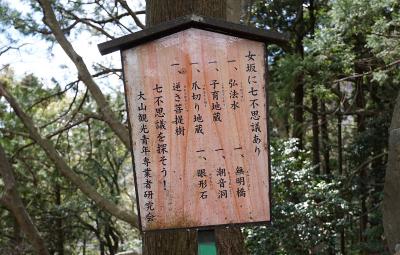 女坂に七不思議あり
一、弘法水
一、無明橋
一、子育地蔵
一、潮音洞
一、爪切り地蔵
一、眼形石
一、逆さ菩提樹
七不思議を探そう！
大山観光青年専業者研究会